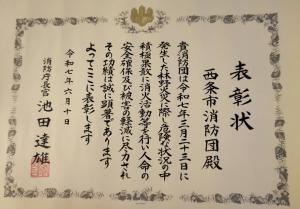 表彰状
西条市消防団殿
貴消防団は令和七年三月二十三日に
発生した林野火災に際し危険な状況の中
積極果敢に消火活動等を行い人命の
安全確保及び被害の軽減に尽力され
その功績は誠に顕著であります
よってここに表彰します
令和七年六月十日
消防庁長官 池田達雄